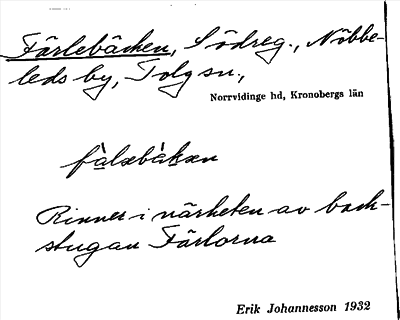 Färlebäcken, Södreg., Nöbbe-
leds by, Tolg sn.,
Norrvidinge hd, Kronobergs län
fàlabàkan
Rinner i närheten av back-
stugan Färlorna
Erik Johannesson 1932